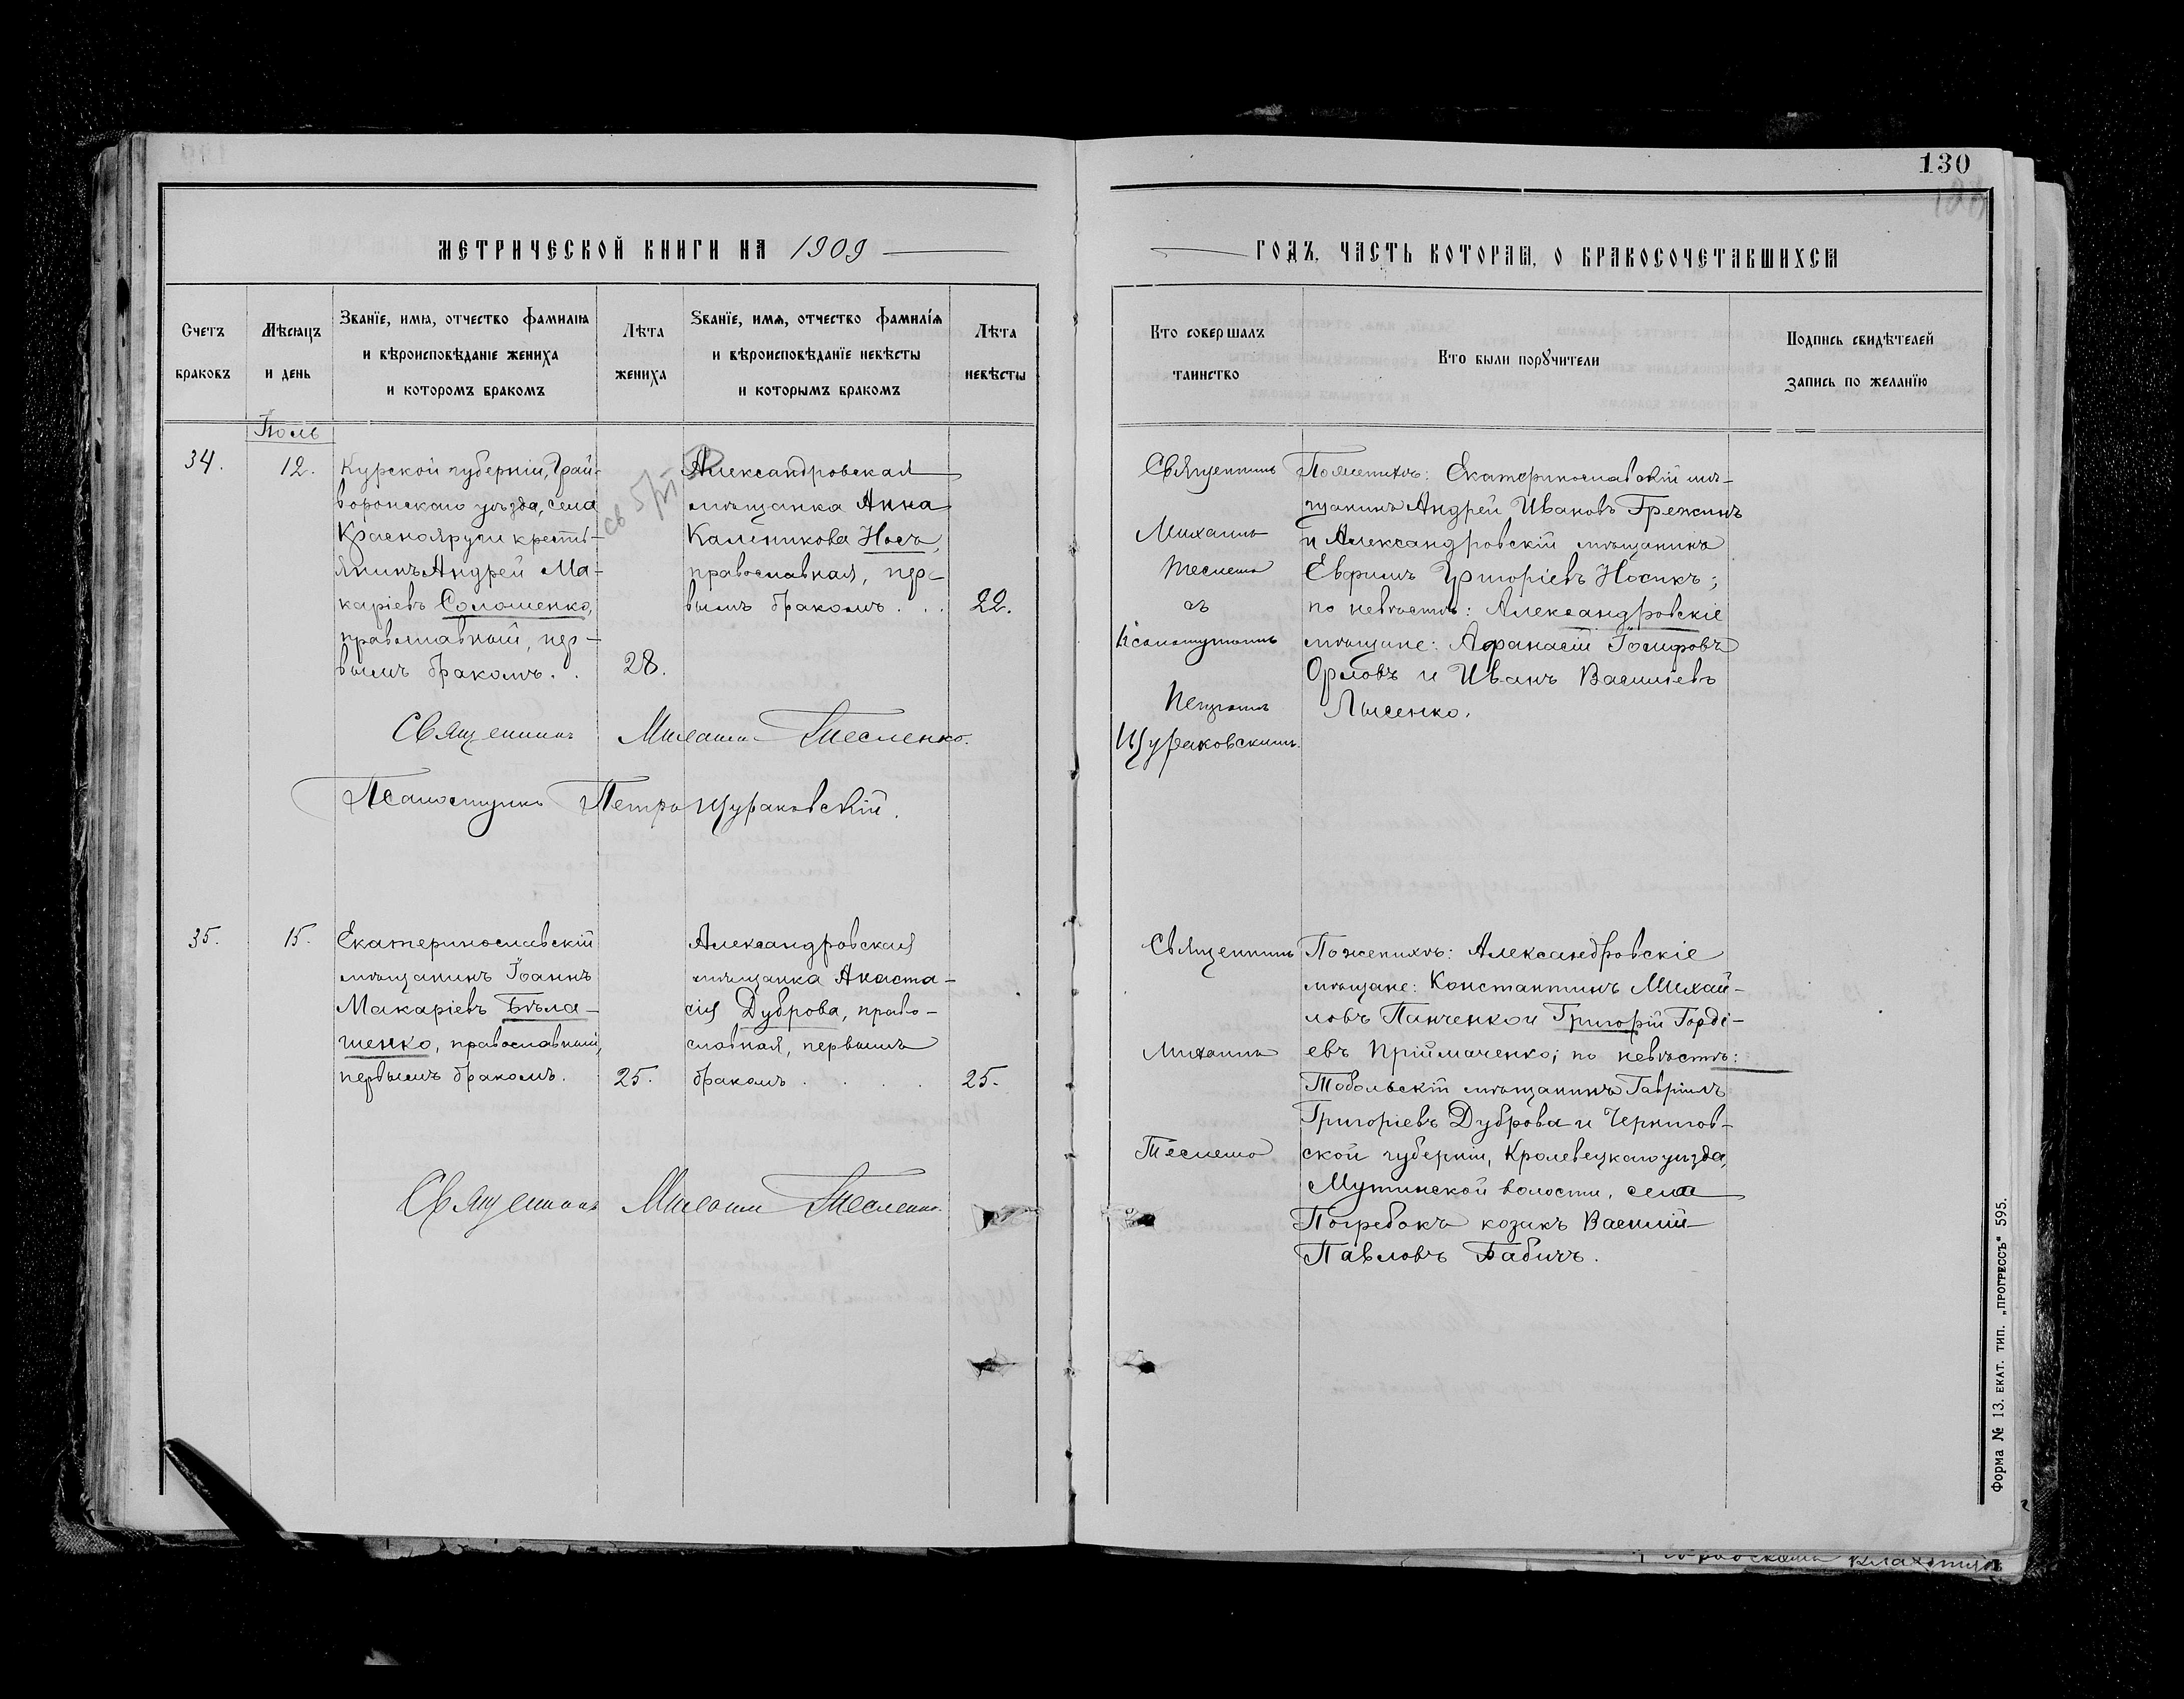 130
МЕТРИЧЕСКОЙ КНИГИ НА 1909
ГОДЪ, ЧАСТЬ КОТОРАЯ, О БРАКОСОЧЕТАВШИХСЯ
Счетъ
браковъ
Мѣсяцъ
и день
Званїе, имя, отчество фамилия
и вѣроисповѣданіе жениха
и которомъ бракомъ
Лѣта
жениха
Званїе, имя, отчество фамилїя
и вѣроисповѣданїе невѣсты
и которымъ бракомъ
Лѣта
невѣсты
Кто совершалъ
таинство
Кто были порꙋчители
Подпись свидѣтелей
запись по желанїю
Іюль
34.
12.
Курской губерніи, Грай-
воронскаго уѣзда, села
Краснояруги кресть-
янинъ Андрей Ма-
каріевъ Соломенко,
православный, пер-
вымъ бракомъ. .
28.
Александровская
мѣщанка Анна
Калиникова Носъ,
православная, пер-
вымъ бракомъ . . .
22.
Священникъ Михаилъ Тесленко.
Псаломщикъ Петръ Щураковскій.
Священникъ
Михаилъ
Теслено
съ
Псаломщикомъ
Петромъ
Щураковскимъ.
По женихѣ: Екатеринославскій мѣ-
щанинъ Андрей Ивановъ Грежинъ
и Александровскій мѣщанинъ
Евфимъ Григоріевъ Носикъ;
по невѣстѣ: Александровскіе
мѣщане: Афанасій Іосифовъ
Орловъ и Иванъ Васильевъ
Лысенко.
35.
15.
Екатеринославскій
мѣщанинъ Іоаннъ
Макаріевъ Бѣла-
шенко, православный,
первымъ бракомъ.
25.
Александровская
мѣщанка Анаста-
сія Дуброва, право-
славная, первымъ
бракомъ . . . .
25.
Священникъ Михаилъ Тесленко.
Священникъ
Михаилъ
Теслено
По женихѣ: Александровскіе
мѣщане: Константинъ Михай-
ловъ Панченко и Григорій Гордѣ-
евъ Прiймаченко; по невѣстѣ:
Тобольскій мѣщанинъ Гавріилъ
Григоріевъ Дуброва и Чернигов-
ской губерніи, Кролевецкаго уѣзда,
Мутинской волости, села
Погребокъ козакъ Василій
Павловъ Бабичъ.
Форма № 13. ЕКАТ. ТИП. „ПРОГРЕССЪ“ 595.